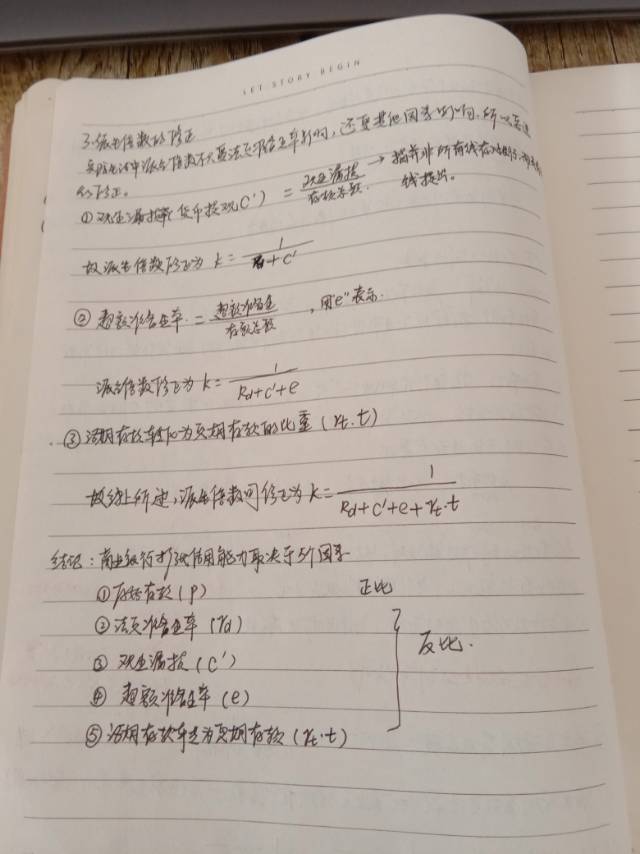 LET STORY BEGIN
3.派生倍数的修正
实际生活中派生倍数不只受法定准备金率影响,还受其他因素影响,所以要进
行修正。
① 现金漏损率(货币提现C') = 现金漏损/存款总额 → 指并非所有钱存在银行,
钱提出。
故派生倍数修正为 k= 1/(rd+C')
② 超额准备金率 = 超额准备金/存款总数 ,用"e"表示.
派生倍数修正为 k= 1/(Rd+C'+e)
③ 活期存款转化为定期存款的比重(rt.t)
故综上所述,派生倍数可修正为 k= 1/(Rd+C'+e+rt.t)
结论:商业银行扩张信用能力取决于5个因素
①原始存款(P) 正比
②法定准备金率(rd)
③ 现金漏损(C') 反比.
④ 超额准备金率(e)
⑤活期存款转为定期存款(rt.t)